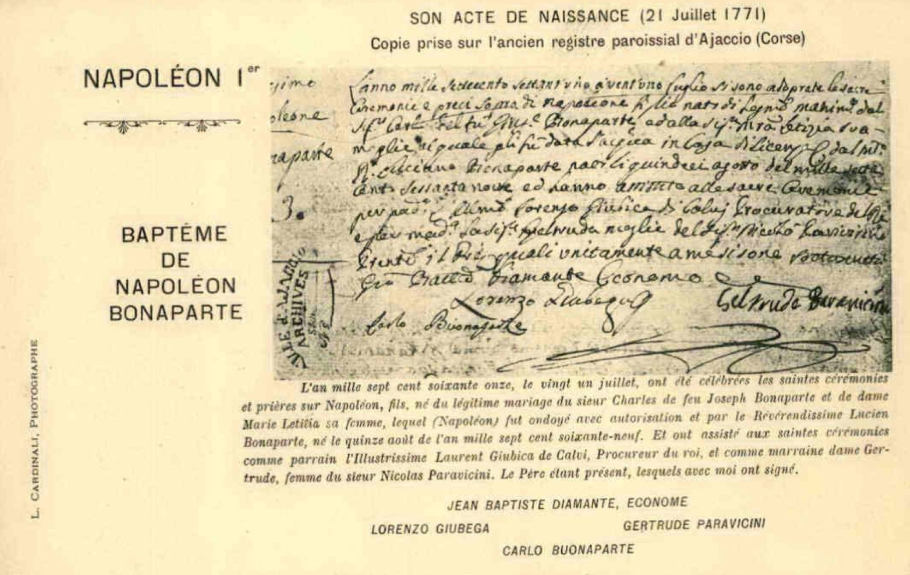 SON ACTE DE NAISSANCE (21 Juillet 1771)
Copie prise sur l'ancien registre paroissial d'Ajaccio (Corse)
NAPOLÉON Ier
BAPTÊME
DE
NAPOLÉON
BONAPARTE
L. CARDINALI, PHOTOGRAPHE
L'anno mille settecento settant'uno a vent'uno Luglio si sono adoprate le sacre
Ceremonie e preci sopra di Napoleone figlio nato di
Bonaparte ed alla
moglie al quale
Bonaparte quindeci agosto del mille sette
cento sessanta nove ed hanno assistito alle sacre Ceremonie
Lorenzo di Calvi Procuratore del Rè
moglie del
quali unitamente a me si sono
Diamante Economo
Lorenzo Giubega
Geltruda Paravicini
Carlo Buonaparte
VILLE d'AJACCIO
ARCHIVES
L'an mille sept cent soixante onze, le vingt un juillet, ont été célébrées les saintes cérémonies
et prières sur Napoléon, fils, né du légitime mariage du sieur Charles de feu Joseph Bonaparte et de dame
Marie Letitia sa femme, lequel (Napoléon) fut ondoyé avec autorisation et par le Révérendissime Lucien
Bonaparte, né le quinze août de l'an mille sept cent soixante-neuf. Et ont assisté aux saintes cérémonies
comme parrain l'Illustrissime Laurent Giubica de Calvi, Procureur du roi, et comme marraine dame Ger-
trude, femme du sieur Nicolas Paravicini. Le Père étant présent, lesquels avec moi ont signé.
JEAN BAPTISTE DIAMANTE, ECONOME
LORENZO GIUBEGA GERTRUDE PARAVICINI
CARLO BUONAPARTE